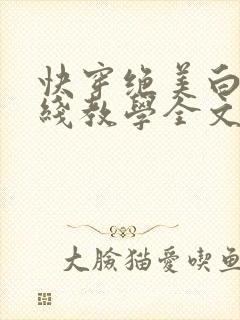 快穿绝美白
綫教學全文
大臉猫愛喫魚